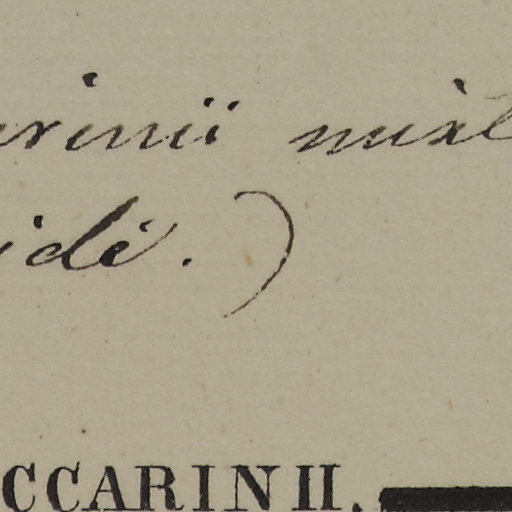 arinii mixt
idi.)
CCARINII.